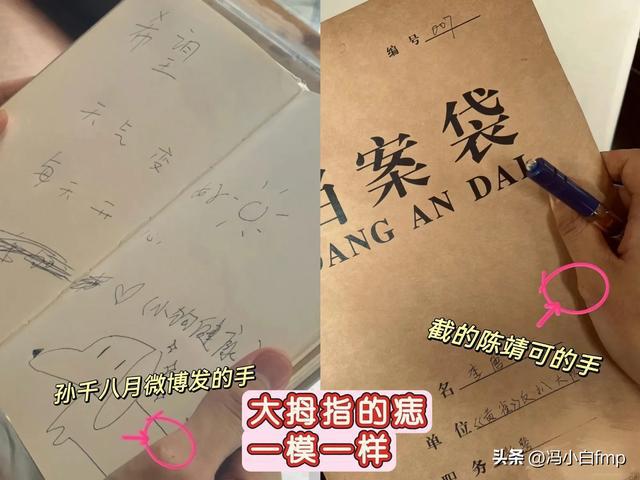 希润
王
天气变
每天开
好
心
(小狗健康)
孙千八月微博发的手
编号 007
档案袋
DANG AN DAI
截的陈靖可的手
名
单位
职务
大拇指的痣
一模一样
头条 @冯小白fmp